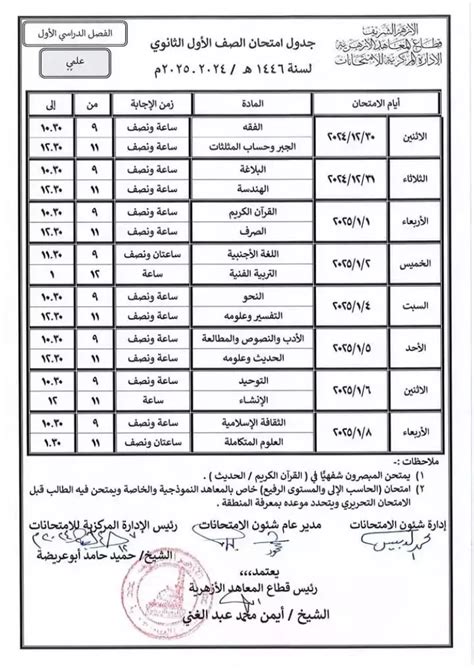 الأزهر الشريف
قطاع المعاهد الأزهرية
الإدارة المركزية للامتحانات
جدول امتحان الصف الأول الثانوي
لسنة ١٤٤٦ هـ / ٢٠٢٤ـ٢٠٢٥م
الفصل الدراسي الأول
علمي
أيام الامتحان المادة زمن الإجابة من إلى
الاثنين ٢٠٢٤/١٢/٣٠ الفقه ساعة ونصف ٩ ١٠.٣٠
الجبر وحساب المثلثات ساعة ونصف ١١ ١٢.٣٠
الثلاثاء ٢٠٢٤/١٢/٣١ البلاغة ساعة ونصف ٩ ١٠.٣٠
الهندسة ساعة ونصف ١١ ١٢.٣٠
الأربعاء ٢٠٢٥/١/١ القرآن الكريم ساعة ونصف ٩ ١٠.٣٠
الصرف ساعة ونصف ١١ ١٢.٣٠
الخميس ٢٠٢٥/١/٢ اللغة الأجنبية ساعتان ونصف ٩ ١١.٣٠
التربية الفنية ساعة ١٢ ١
السبت ٢٠٢٥/١/٤ النحو ساعة ونصف ٩ ١٠.٣٠
التفسير وعلومه ساعة ونصف ١١ ١٢.٣٠
الأحد ٢٠٢٥/١/٥ الأدب والنصوص والمطالعة ساعة ونصف ٩ ١٠.٣٠
الحديث وعلومه ساعة ونصف ١١ ١٢.٣٠
الاثنين ٢٠٢٥/١/٦ التوحيد ساعة ونصف ٩ ١٠.٣٠
الإنشاء ساعة ١١ ١٢
الأربعاء ٢٠٢٥/١/٨ الثقافة الإسلامية ساعة ونصف ٩ ١٠.٣٠
العلوم المتكاملة ساعتان ونصف ١١ ١.٣٠
ملاحظات :-
١) يمتحن المبصرون شفهيًا في ( القرآن الكريم / الحديث ) .
٢) امتحان (الحاسب الآلي والمستوى الرفيع) خاص بالمعاهد النموذجية والخاصة ويمتحن فيه الطالب قبل
الامتحان التحريري ويتحدد موعده بمعرفة المنطقة .
إدارة شئون الامتحانات مدير عام شئون الامتحانات رئيس الإدارة المركزية للامتحانات
الشيخ/ حميد حامد أبوعريضة
يعتمد،،،
رئيس قطاع المعاهد الأزهرية
الشيخ / أيمن محمد عبد الغني